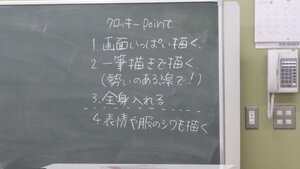 クロッキー Point
1. 画面いっぱい描く、
2. 一筆描きで描く
(勢いのある線で!)
3. 全身入れる
4. 表情や服のシワも描く